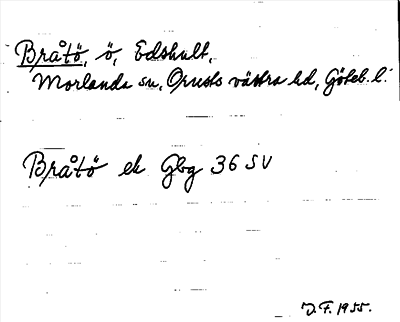 Bråtö, ö, Edshult,
Morlanda sn, Orusts västra hd, Göteb. l.
Bråtö ek Gbg 36 SV
J. F. 1955.